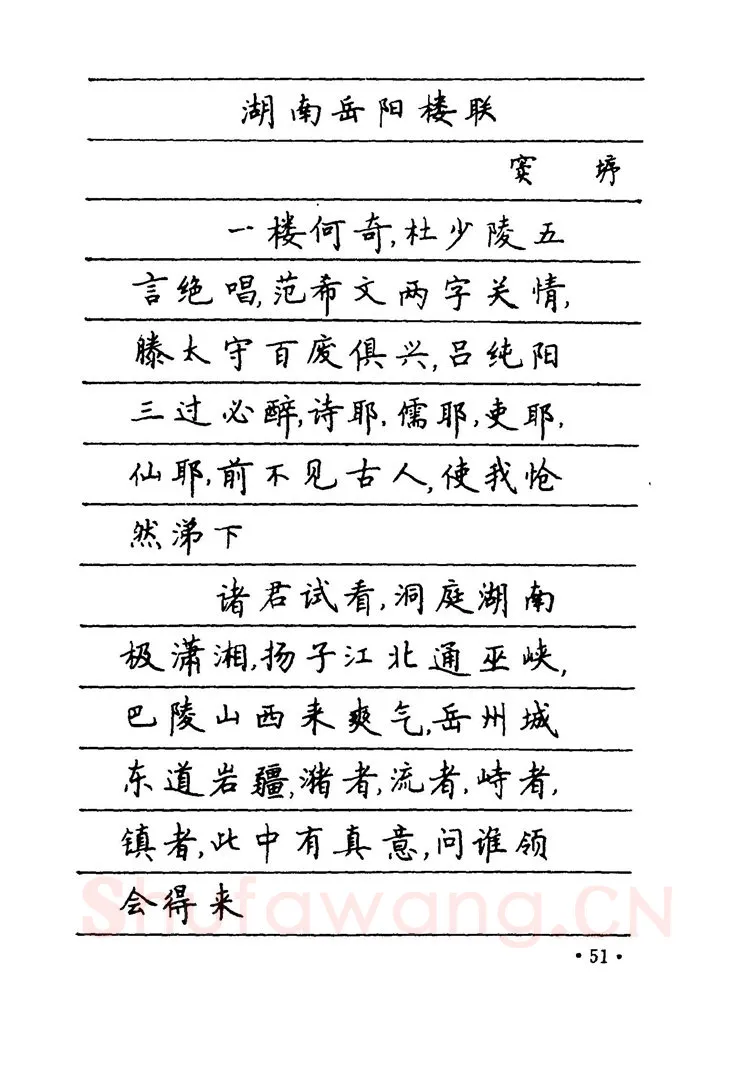 湖南岳阳楼联
窦 垿
一楼何奇,杜少陵五
言绝唱,范希文两字关情,
滕太守百废俱兴,吕纯阳
三过必醉,诗耶,儒耶,吏耶,
仙耶,前不见古人,使我怆
然涕下
诸君试看,洞庭湖南
极潇湘,扬子江北通巫峡,
巴陵山西来爽气,岳州城
东道岩疆,潴者,流者,峙者,
镇者,此中有真意,问谁领
会得来
Shufawang.CN
·51·